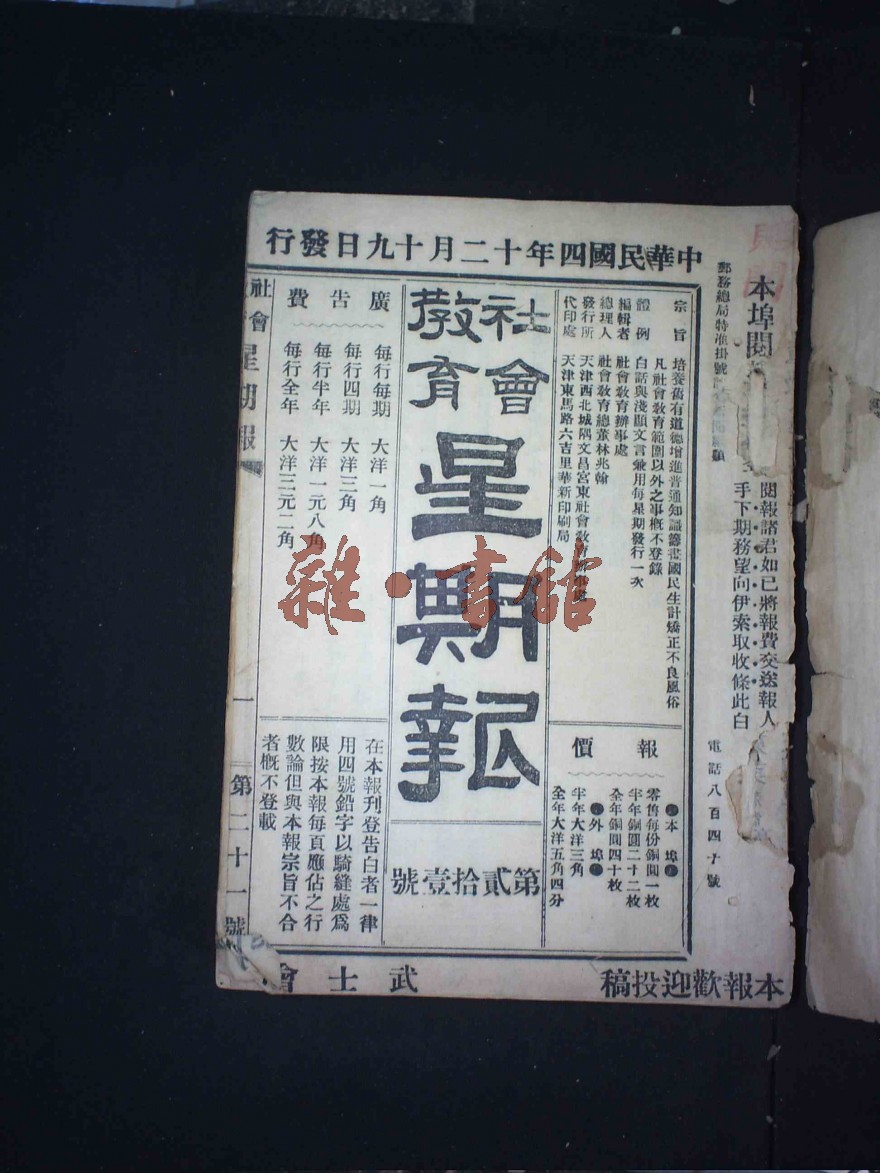 中華民國四年十二月十九日發行
本埠閱
閱報諸君如已將報費交送報人
手下期務望向伊索取收條此白
郵務總局特准掛號
電話八百四十號
宗旨 培養舊有道德增進普通知識籌畫國民生計矯正不良風俗
凡社會敎育範圍以外之事槪不登錄
體例 白話與淺顯文言兼用每星期發行一次
編輯者 社會敎育辦事處
總理人 社會敎育總董林兆翰
發行所 天津西北城隅文昌宮東社會敎育
代印處 天津東馬路六吉里華新印刷局
報價
本埠
零售每份銅圓一枚
半年銅圓二十二枚
全年銅圓四十枚
外埠
半年大洋三角
全年大洋五角四分
社會
敎育
星期報
第貳拾壹號
廣告費
每行每期 大洋一角
每行四期 大洋三角
每行半年 大洋一元八角
每行全年 大洋三元二角
在本報刊登告白者一律
用四號鉛字以騎縫處爲
限按本報每頁應佔之行
數論但與本報宗旨不合
者槪不登載
社會
星期報
一
第二十一號
本報歡迎投稿
武士會
雜·書館